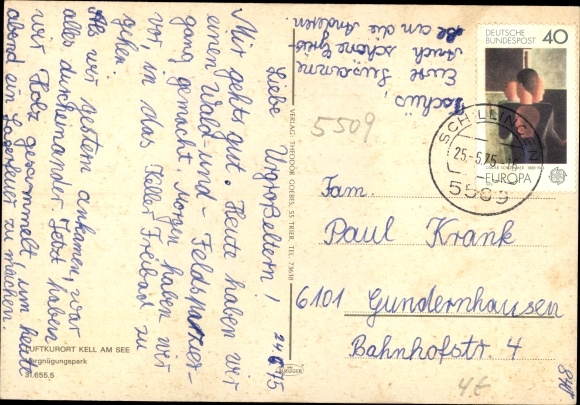 24.6.75
Liebe Urgroßeltern!
Mir gehts gut. Heute haben wir
einen Wald-und-Feldspazier-
gang gemacht. Morgen haben wir
vor, in das Keller Freibad zu
gehen.
Als wir gestern ankamen, war
alles durcheinander. Jetzt haben
wir Holz gesammelt, um heute
abend ein Lagerfeuer zu machen.
Tschüs,
Eure Susanne
Auch schöne Grüs-
se an die Anderen
VERLAG: THEODOR GOEBES, 55 TRIER, TEL. 73630
KRÜGER
LUFTKURORT KELL AM SEE
Vergnügungspark
31.655.5
5509
DEUTSCHE
BUNDESPOST 40
EUROPA
SCHILLINGEN
25.-6.75
5509
Fam.
Paul Krank
6101 Gundernhausen
Bahnhofstr. 4